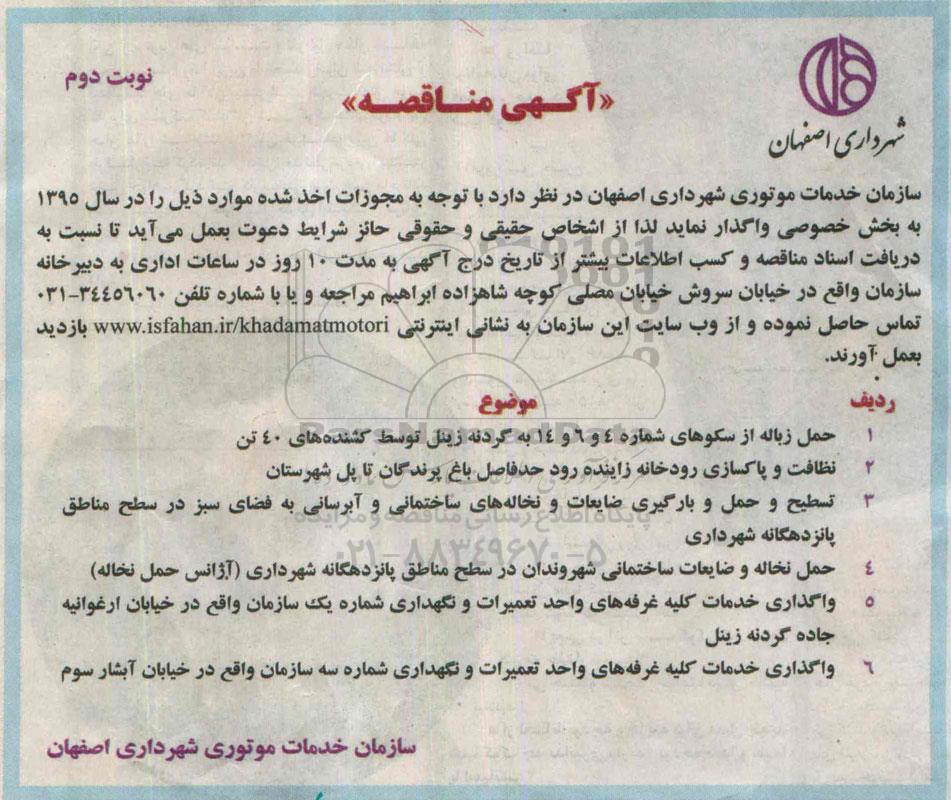 نوبت دوم
«آگهی مناقصه»
شهرداری اصفهان
سازمان خدمات موتوری شهرداری اصفهان در نظر دارد با توجه به مجوزات اخذ شده موارد ذیل را در سال ۱۳۹۵
به بخش خصوصی واگذار نماید لذا از اشخاص حقیقی و حقوقی حائز شرایط دعوت بعمل می‌آید تا نسبت به
دریافت اسناد مناقصه و کسب اطلاعات بیشتر از تاریخ درج آگهی به مدت ۱۰ روز در ساعات اداری به دبیرخانه
سازمان واقع در خیابان سروش خیابان مصلی کوچه شاهزاده ابراهیم مراجعه و یا با شماره تلفن ۳۴۴۵۶۰۶۰-۰۳۱
تماس حاصل نموده و از وب سایت این سازمان به نشانی اینترنتی www.isfahan.ir/khadamatmotori بازدید
بعمل آورند.
ردیف موضوع
۱ حمل زباله از سکوهای شماره ٤ و ٦ و ١٤ به گردنه زینل توسط کشنده‌های ٤٠ تن
۲ نظافت و پاکسازی رودخانه زاینده رود حدفاصل باغ پرندگان تا پل شهرستان
۳ تسطیح و حمل و بارگیری ضایعات و نخاله‌های ساختمانی و آبرسانی به فضای سبز در سطح مناطق
پانزدهگانه شهرداری
٤ حمل نخاله و ضایعات ساختمانی شهروندان در سطح مناطق پانزدهگانه شهرداری (آژانس حمل نخاله)
٥ واگذاری خدمات کلیه غرفه‌های واحد تعمیرات و نگهداری شماره یک سازمان واقع در خیابان ارغوانیه
جاده گردنه زینل
٦ واگذاری خدمات کلیه غرفه‌های واحد تعمیرات و نگهداری شماره سه سازمان واقع در خیابان آبشار سوم
سازمان خدمات موتوری شهرداری اصفهان
ParsNamadData
پایگاه اطلاع رسانی مناقصه و مزایده
۰۲۱-۸۸۳۴۹۶۷۰-۵